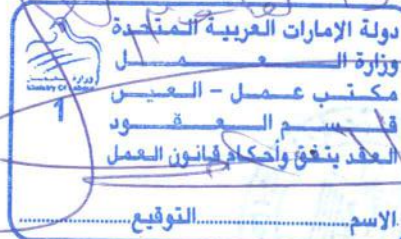 دولة الإمارات العربية المتحدة
وزارة العمل
مكتب عمل - العين
قسم العقود
العقد يتفق وأحكام قانون العمل
1
الاسم..................التوقيع..................